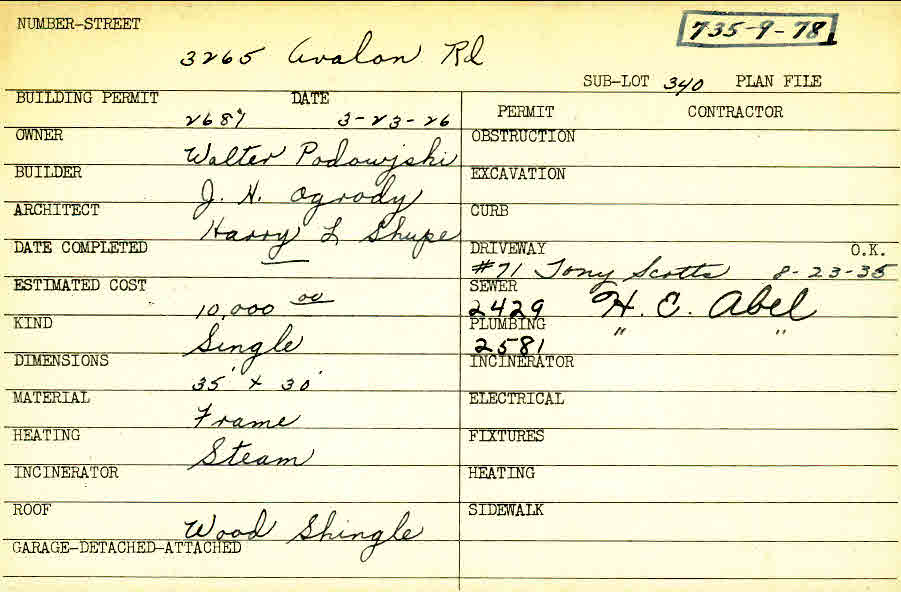 NUMBER-STREET
735-9-78
3265 Avalon Rd
SUB-LOT 340 PLAN FILE
BUILDING PERMIT DATE
2687 3-23-26
OWNER
Walter Podowjski
BUILDER
J. H. Ogrody
ARCHITECT
Harry L Shupe
DATE COMPLETED
ESTIMATED COST
10,000 00
KIND
Single
DIMENSIONS
35' x 30'
MATERIAL
Frame
HEATING
Steam
INCINERATOR
ROOF
Wood Shingle
GARAGE-DETACHED-ATTACHED
PERMIT CONTRACTOR
OBSTRUCTION
EXCAVATION
CURB
DRIVEWAY O.K.
#71 Tony Scotts 8-23-35
SEWER
2429 H. E. Abel
PLUMBING
2581 " "
INCINERATOR
ELECTRICAL
FIXTURES
HEATING
SIDEWALK